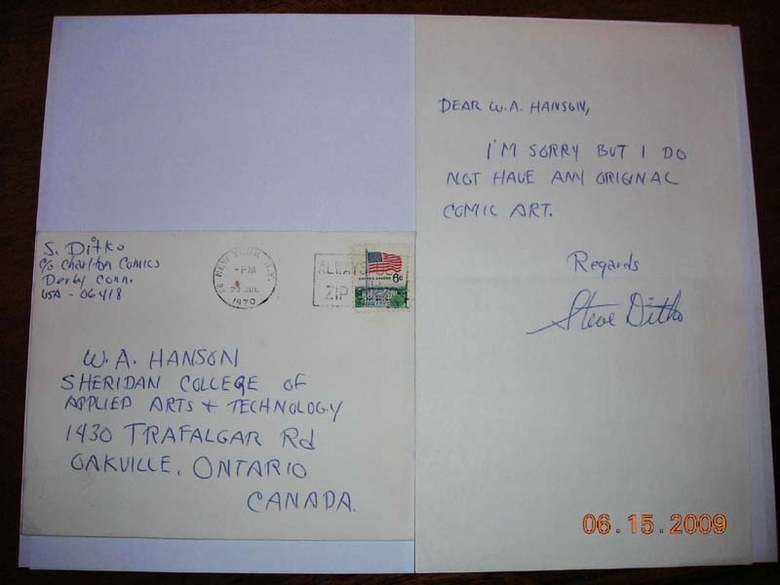 DEAR W.A. HANSON,
I'M SORRY BUT I DO
NOT HAVE ANY ORIGINAL
COMIC ART.
Regards
Steve Ditko
S. Ditko
c/o Charlton Comics
Derby Conn.
USA - 06418
NEW YORK, N.Y.
-PM
JUL
1970
ALWAYS
ZIP
6c
W. A. HANSON
SHERIDAN COLLEGE OF
APPLIED ARTS + TECHNOLOGY
1430 TRAFALGAR Rd
OAKVILLE, ONTARIO
CANADA.
06.15.2009